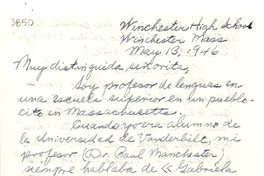 3850
Winchester High School
Winchester Mass
May 13, 1946
Muy distinguida señorita,
Soy profesor de lenguas en
una escuela superior en un pueblo-
cito en Massachusetts.
Cuando yo era alumno de
la Universidad de Vanderbilt, mi
profesor (Dr. Paul Manchester)
siempre hablaba de << Gabriela